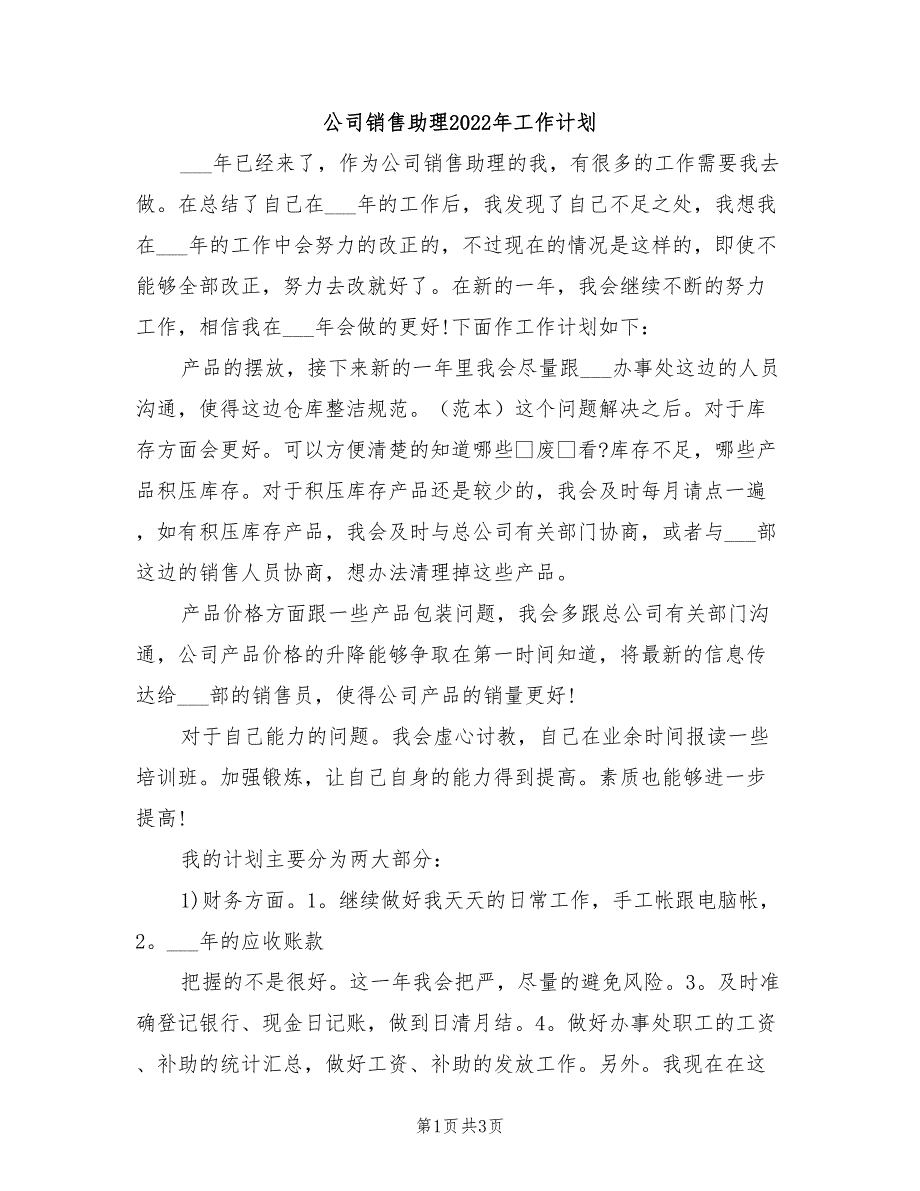 公司销售助理2022年工作计划
___年已经来了，作为公司销售助理的我，有很多的工作需要我去
做。在总结了自己在___年的工作后，我发现了自己不足之处，我想我
在___年的工作中会努力的改正的，不过现在的情况是这样的，即使不
能够全部改正，努力去改就好了。在新的一年，我会继续不断的努力
工作，相信我在___年会做的更好!下面作工作计划如下：
产品的摆放，接下来新的一年里我会尽量跟___办事处这边的人员
沟通，使得这边仓库整洁规范。（范本）这个问题解决之后。对于库
存方面会更好。可以方便清楚的知道哪些□废□看?库存不足，哪些产
品积压库存。对于积压库存产品还是较少的，我会及时每月请点一遍
，如有积压库存产品，我会及时与总公司有关部门协商，或者与___部
这边的销售人员协商，想办法清理掉这些产品。
产品价格方面跟一些产品包装问题，我会多跟总公司有关部门沟
通，公司产品价格的升降能够争取在第一时间知道，将最新的信息传
达给___部的销售员，使得公司产品的销量更好!
对于自己能力的问题。我会虚心计教，自己在业余时间报读一些
培训班。加强锻炼，让自己自身的能力得到提高。素质也能够进一步
提高!
我的计划主要分为两大部分：
1)财务方面。1。继续做好我天天的日常工作，手工帐跟电脑帐，
2。___年的应收账款
把握的不是很好。这一年我会把严，尽量的避免风险。3。及时准
确登记银行、现金日记账，做到日清月结。4。做好办事处职工的工资
、补助的统计汇总，做好工资、补助的发放工作。另外。我现在在这
第1页共3页